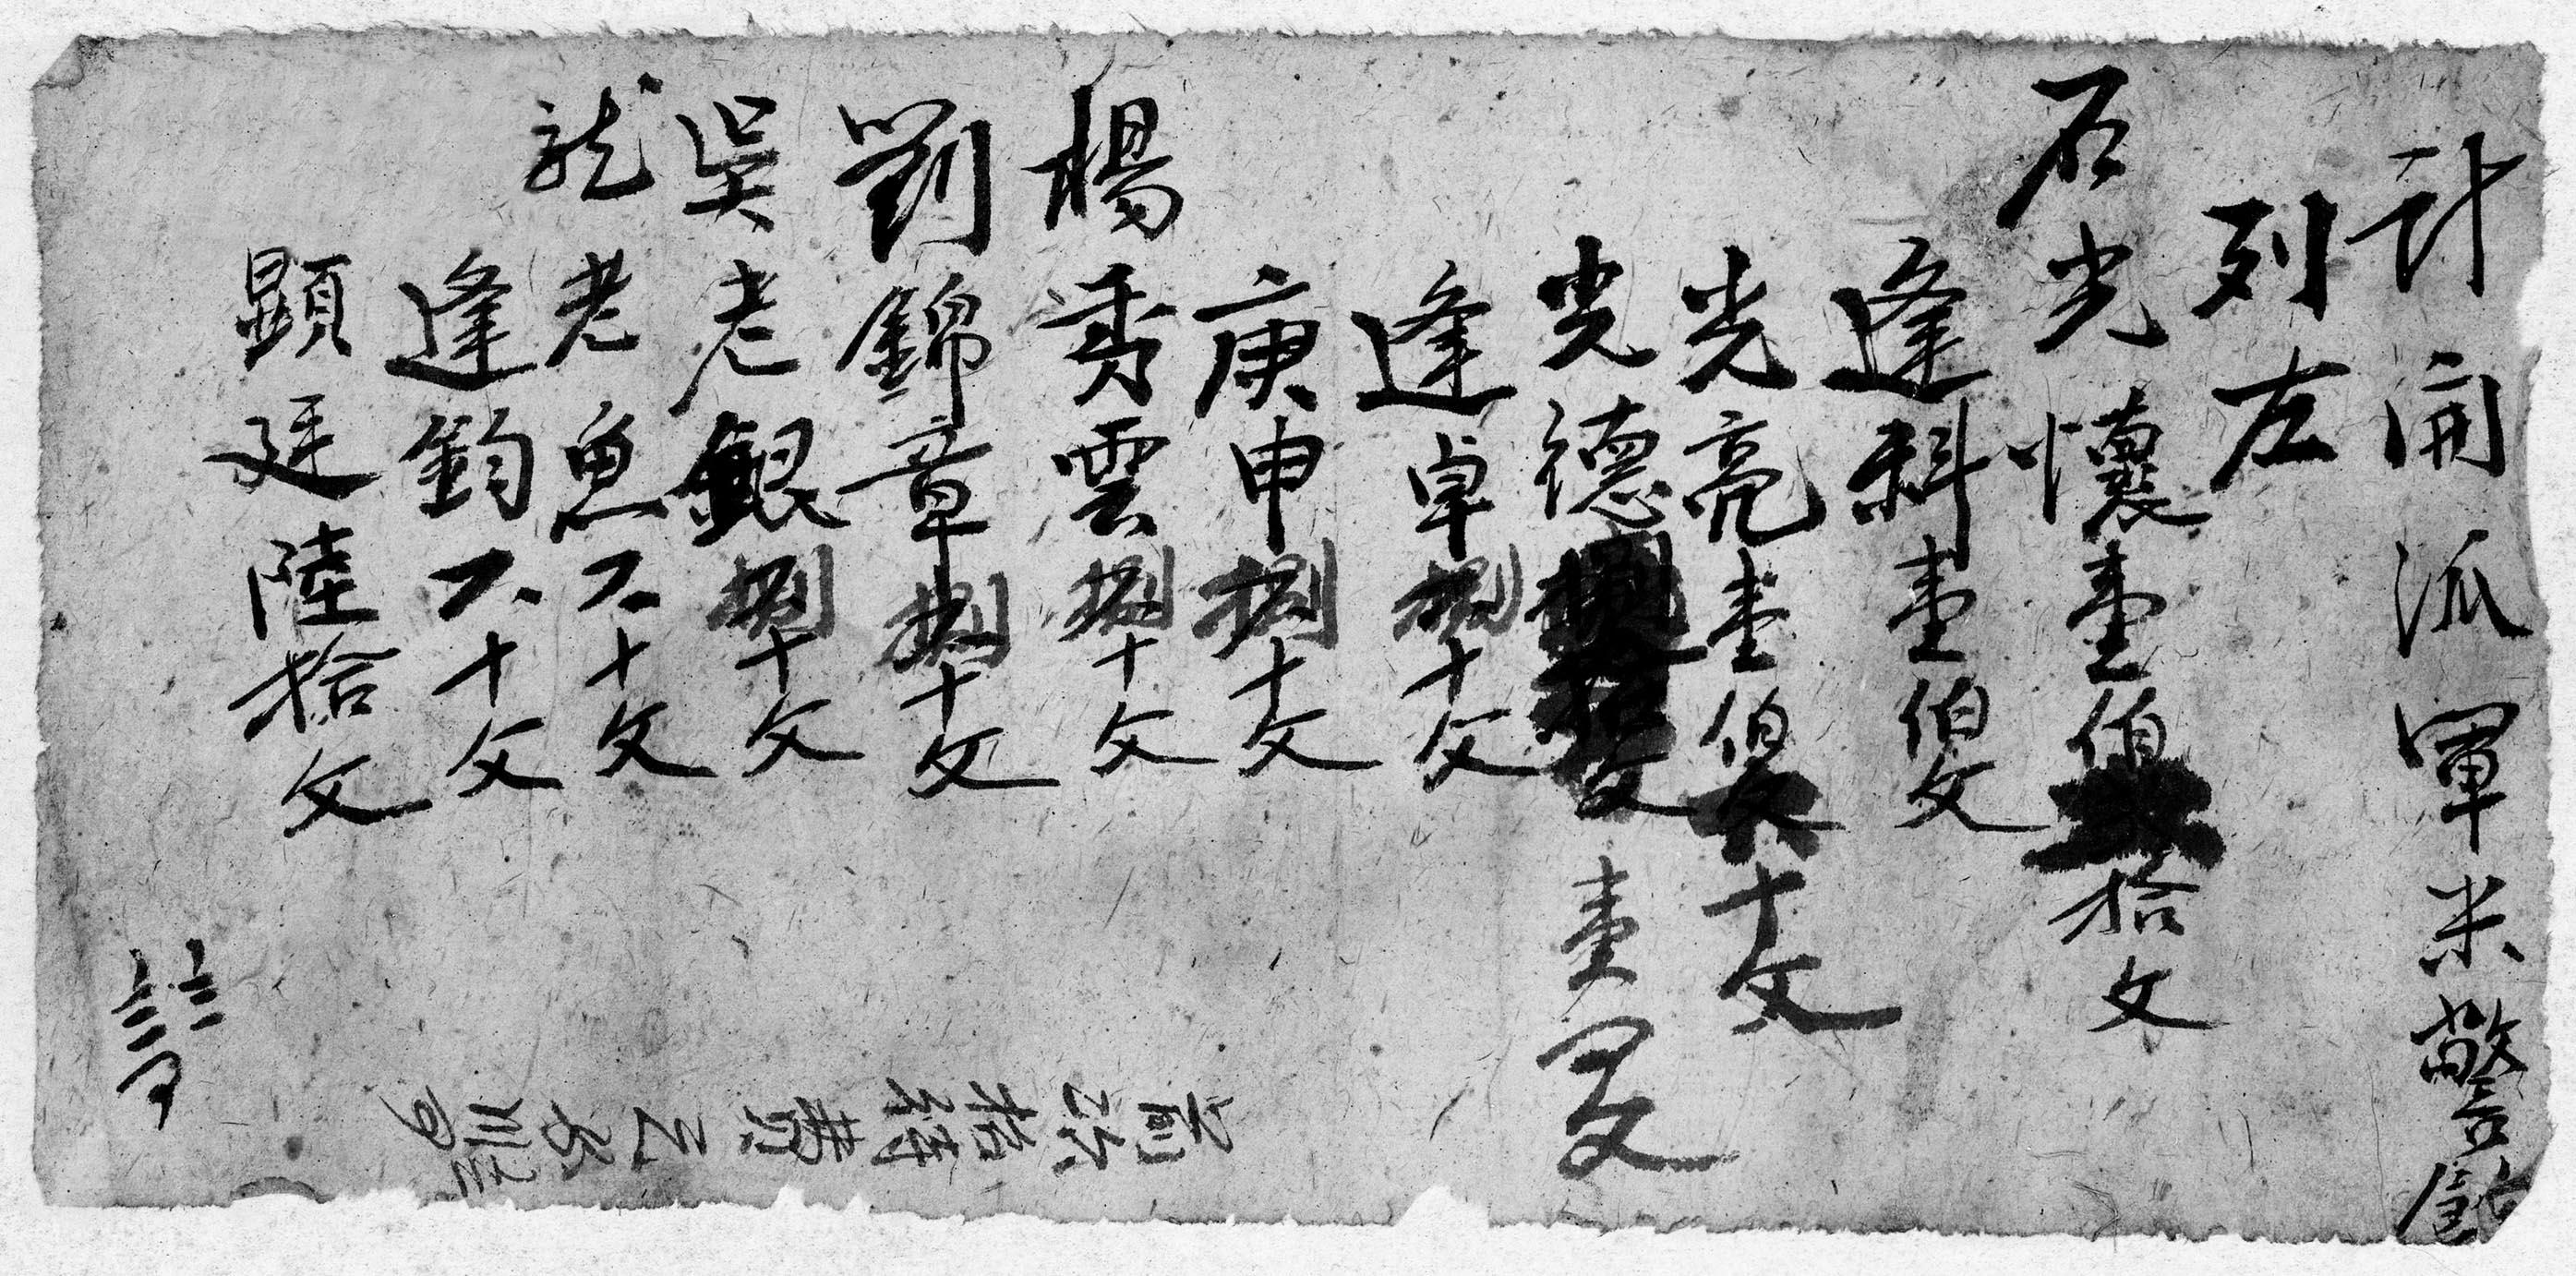 計開派軍米警餉
列左
石光懷壹伯拾文
逢科壹伯文
光亮壹伯十文
光德壹文
逢卓捌十文
庚申捌十文
楊秀雲捌十文
劉錦章捌十文
吳老銀捌十文
龍老魚六十文
逢鈞六十文
顯廷陸拾文